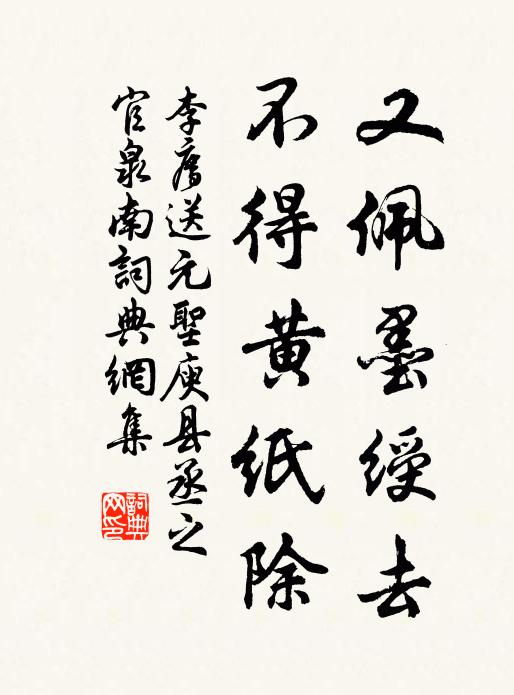 又佩墨綬去
不得黄紙除
李廌送元聖庾县丞之
官泉南詞典網集
詞典網印